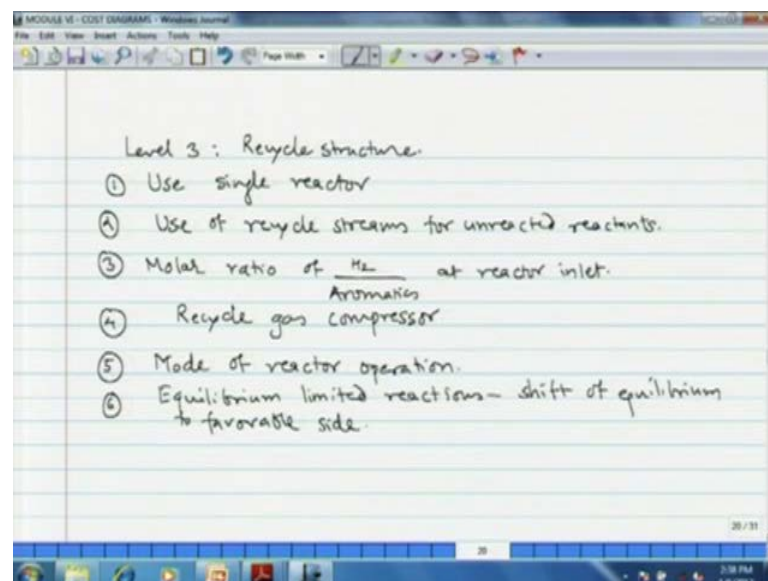 MODULE VI - COST DIAGRAMS - Windows Journal
File Edit View Insert Actions Tools Help
Page Width
Level 3 : Recycle structure.
① Use single reactor
② Use of recycle streams for unreacted reactants.
③ Molar ratio of H2 / Aromatics at reactor inlet.
④ Recycle gas compressor
⑤ Mode of reactor operation.
⑥ Equilibrium limited reactions - shift of equilibrium
to favorable side.
20 / 31
20
2:38 PM